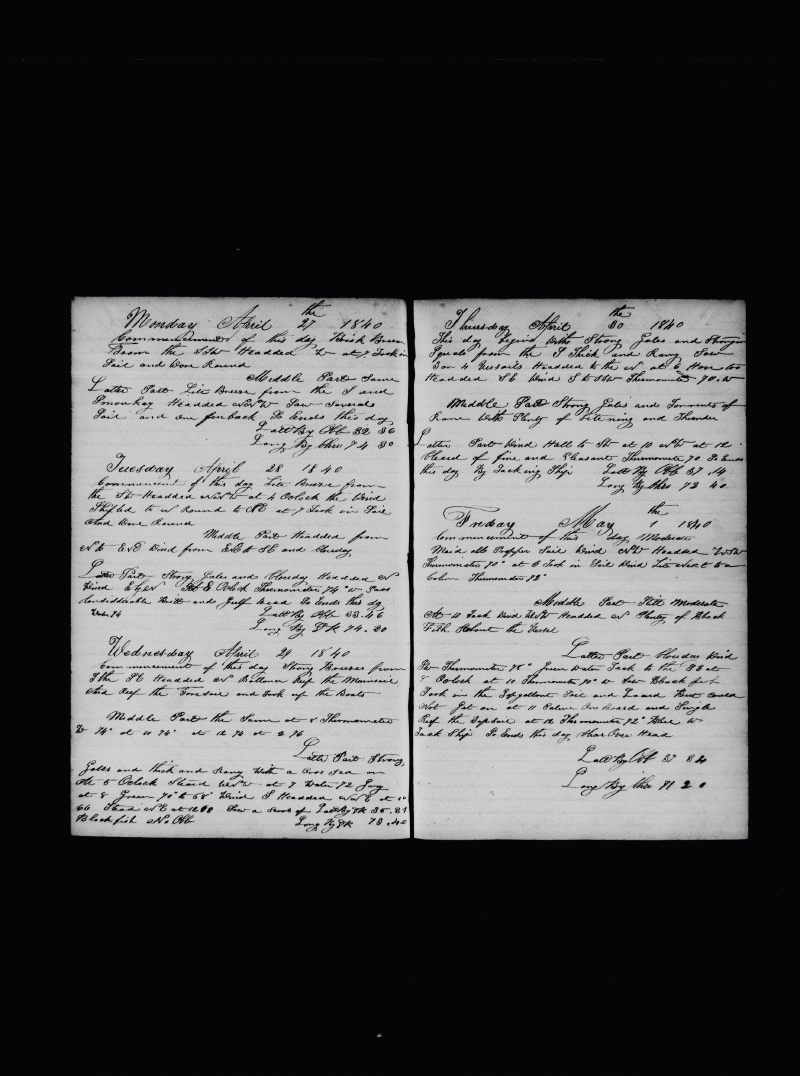 Monday April 27 the 1840
Commencement of this day Brisk Breeze
From the SSW Headded W at 7 Took in
Sail and Wore Round
Middle Part Same
Latter Part Lite Breeze from the S and
Smoakey Headded WNW Saw Several
Sail and one finback So Ends this day
Latt By Obb 32 36
Long By Chro 74 30
Tuesday April 28 1840
Commencement of the day Lite Breeze from
the Headded at 4 Oclock the Wind
Shifted to N Round to NE at 7 Took in Sail
And Wore Round
Middle Part Headded from
N to Wind from to SE and Cloudy
Latter Part Strong Gales and Cloudy Headded N
Wind E by N At 8 Oclock Thermometer 74° Pass
Considerable and Gulf Weed So Ends this dy
Water 74 Latt By Obb 33.46
Long By DR 74.20
Wednesday April 29 1840
Commencement of this day Strong Breeses from
the SE Headded N Ballence Reef the Mainsail
And Reef the Foresail and Took up the Boats
Middle Part the Same at 8 Thermometer
74° at 10 74° at 12 76 at 2 76
Latter Part Strong
Gales and thick and Rany With a Cros Sea on
At 5 Oclock Steard WNW at 7 Water 72
at 8 Green 70° to 68° Wind S Headded at 10
66 Stead at 12 60 Saw a of Latt By DR 35.21
Blackfish No Obb Long By DR 73.40
Thursday April 30 the 1840
This day Begins With Strong Gales and Stronger
Squals from the S Thick and Rany Saw
3 or 4 Vessails Headded to the N at 6 Hove too
Headded SE Wind S to SSW Thermometer 70. W
Middle Part Strong Gales and Torrents of
Rane With Plenty of Litening and Thunder
Latter Part Wind Hall to at 10 at 12
Cleard of fine and Pleasant Thermomete 70 So Ends
this day By Jack ing Ship Latt By Obb 37.14
Long By Chro 72 40
Friday May 1 the 1840
Commencement of this day Moderate
Maid all Propper Sail Wind NW Headded WSW
Thermometer 70° at 6 Took in Sail Wind Lite Next to a
Calm Thermometer 72°
Middle Part Still Moderate
At 10 Tack Wind Headded N Plenty of Black
Fish About the Vessel
Latter Part Cloudea Wind
Thermometer 75° Green Water Tack to the at
8 Oclock at 10 Thermometer 70° Saw Black fish
Took in the Topgallent Sail and But Could
Not Get on at 11 Calm On Board and Single
Reef the Topsail at 12 Thermometer 72° Blue W
Tack Ship So Ends this day Over Head
Latt By Obb 37 24
Long By Chro 71 20